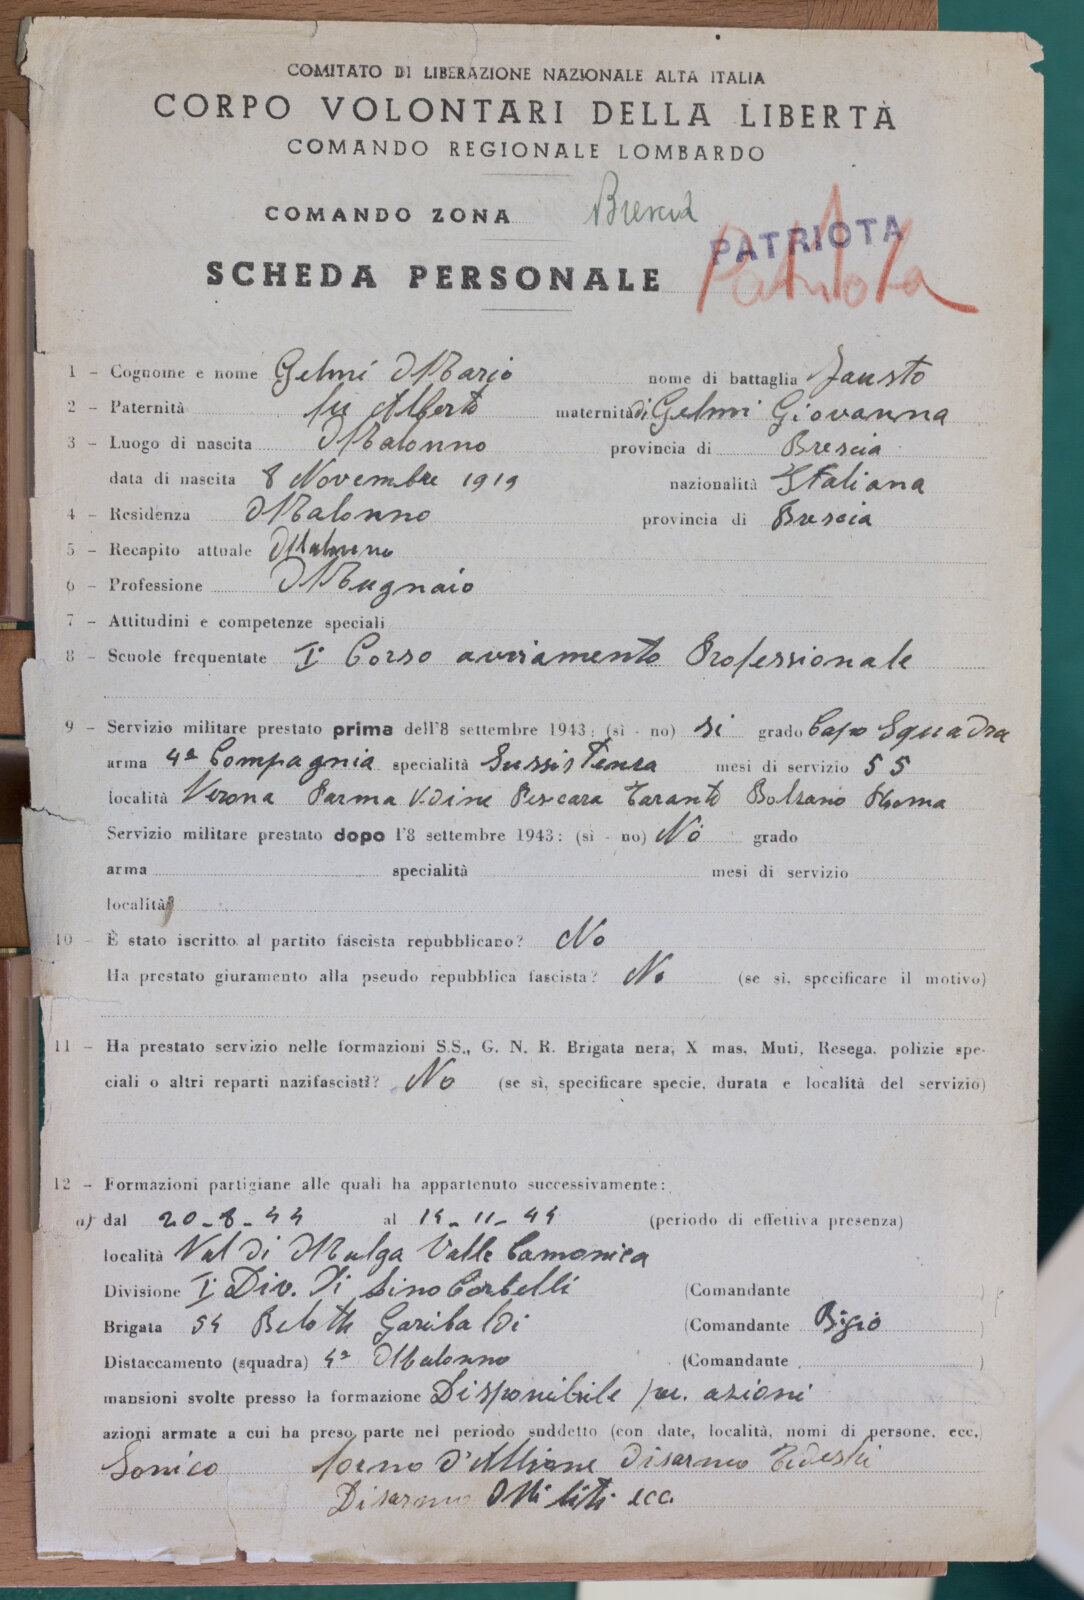 COMITATO DI LIBERAZIONE NAZIONALE ALTA ITALIA
CORPO VOLONTARI DELLA LIBERTÀ
COMANDO REGIONALE LOMBARDO
COMANDO ZONA Brescia
PATRIOTA
SCHEDA PERSONALE Patriota
1 - Cognome e nome Gelmi Mario nome di battaglia Fausto
2 - Paternità fu Alberto maternità di Gelmi Giovanna
3 - Luogo di nascita Malonno provincia di Brescia
data di nascita 8 Novembre 1919 nazionalità Italiana
4 - Residenza Malonno provincia di Brescia
5 - Recapito attuale Malonno
6 - Professione Mugnaio
7 - Attitudini e competenze speciali
8 - Scuole frequentate I° Corso avviamento Professionale
9 - Servizio militare prestato prima dell'8 settembre 1943: (sì - no) si grado Capo Squadra
arma 4ª Compagnia specialità Sussistenza mesi di servizio 55
località Verona Parma Udine Pescara Taranto Bolzano Roma
Servizio militare prestato dopo l'8 settembre 1943: (sì - no) No grado
arma specialità mesi di servizio
località
10 - È stato iscritto al partito fascista repubblicano? No
Ha prestato giuramento alla pseudo repubblica fascista? No (se sì, specificare il motivo)
11 - Ha prestato servizio nelle formazioni S.S., G. N. R. Brigata nera, X mas, Muti, Resega, polizie spe-
ciali o altri reparti nazifascisti? No (se sì, specificare specie, durata e località del servizio)
12 - Formazioni partigiane alle quali ha appartenuto successivamente:
a) dal 20-8-44 al 14-11-44 (periodo di effettiva presenza)
località Val di Malga Valle Camonica
Divisione I° Div. di Lino Corbelli (Comandante )
Brigata 54 Belotti Garibaldi (Comandante Bigio )
Distaccamento (squadra) 4ª Malonno (Comandante )
mansioni svolte presso la formazione Disponibile per azioni
azioni armate a cui ha preso parte nel periodo suddetto (con date, località, nomi di persone, ecc.)
Sonico forno d'Allione Disarmo Tedeschi
Disarmo Militi ecc.